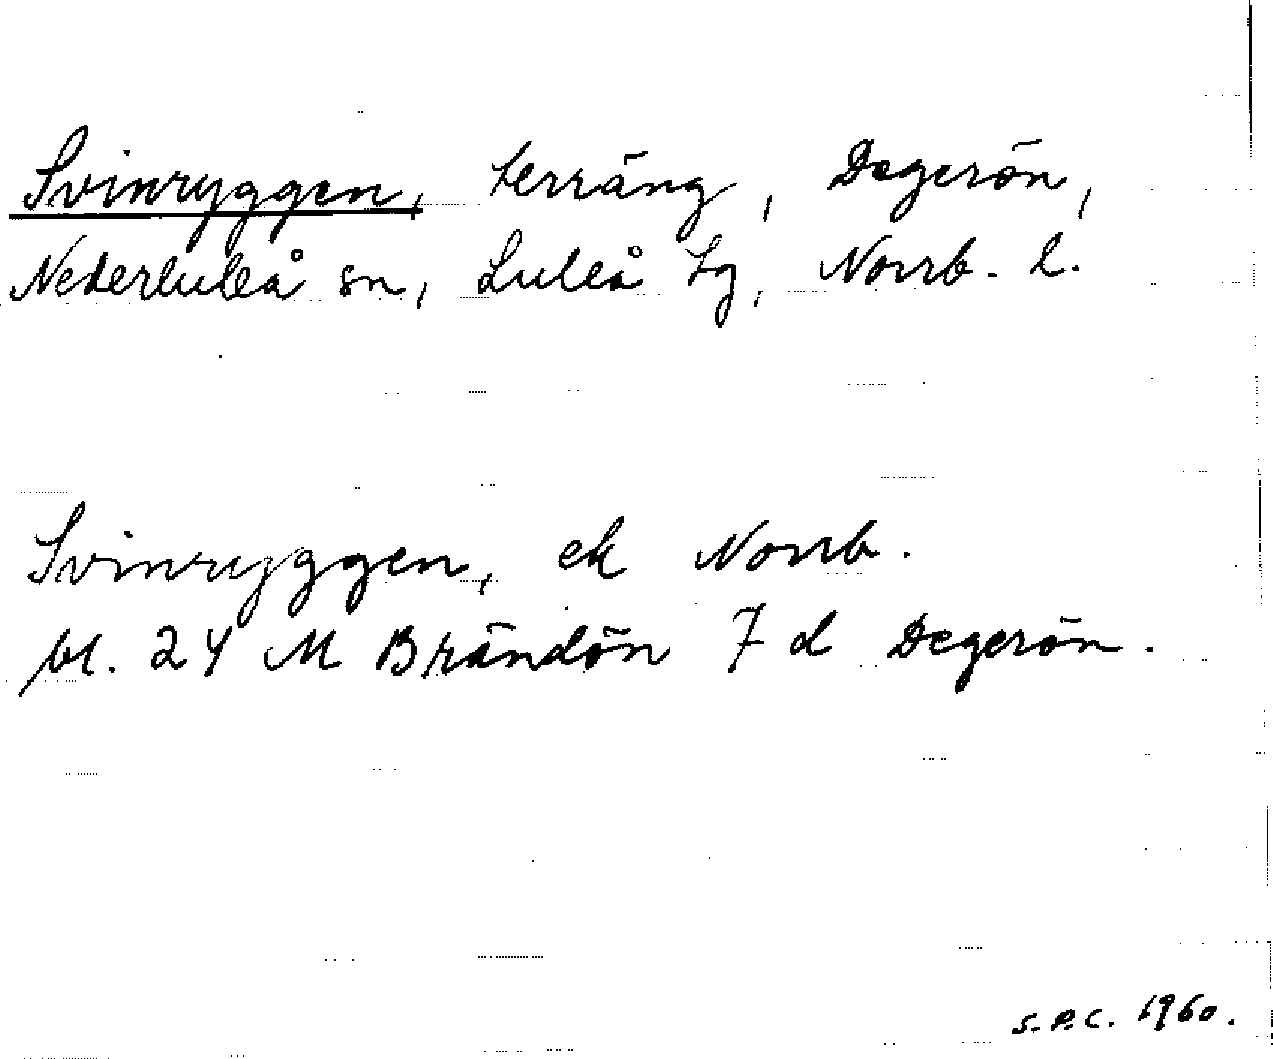 Svinryggen, terräng, Degerön,
Nederluleå sn, Luleå tg, Norrb. l.
Svinryggen, ek Norrb.
bl. 24 M Brändön 7 d Degerön.
S.P.C. 1960.